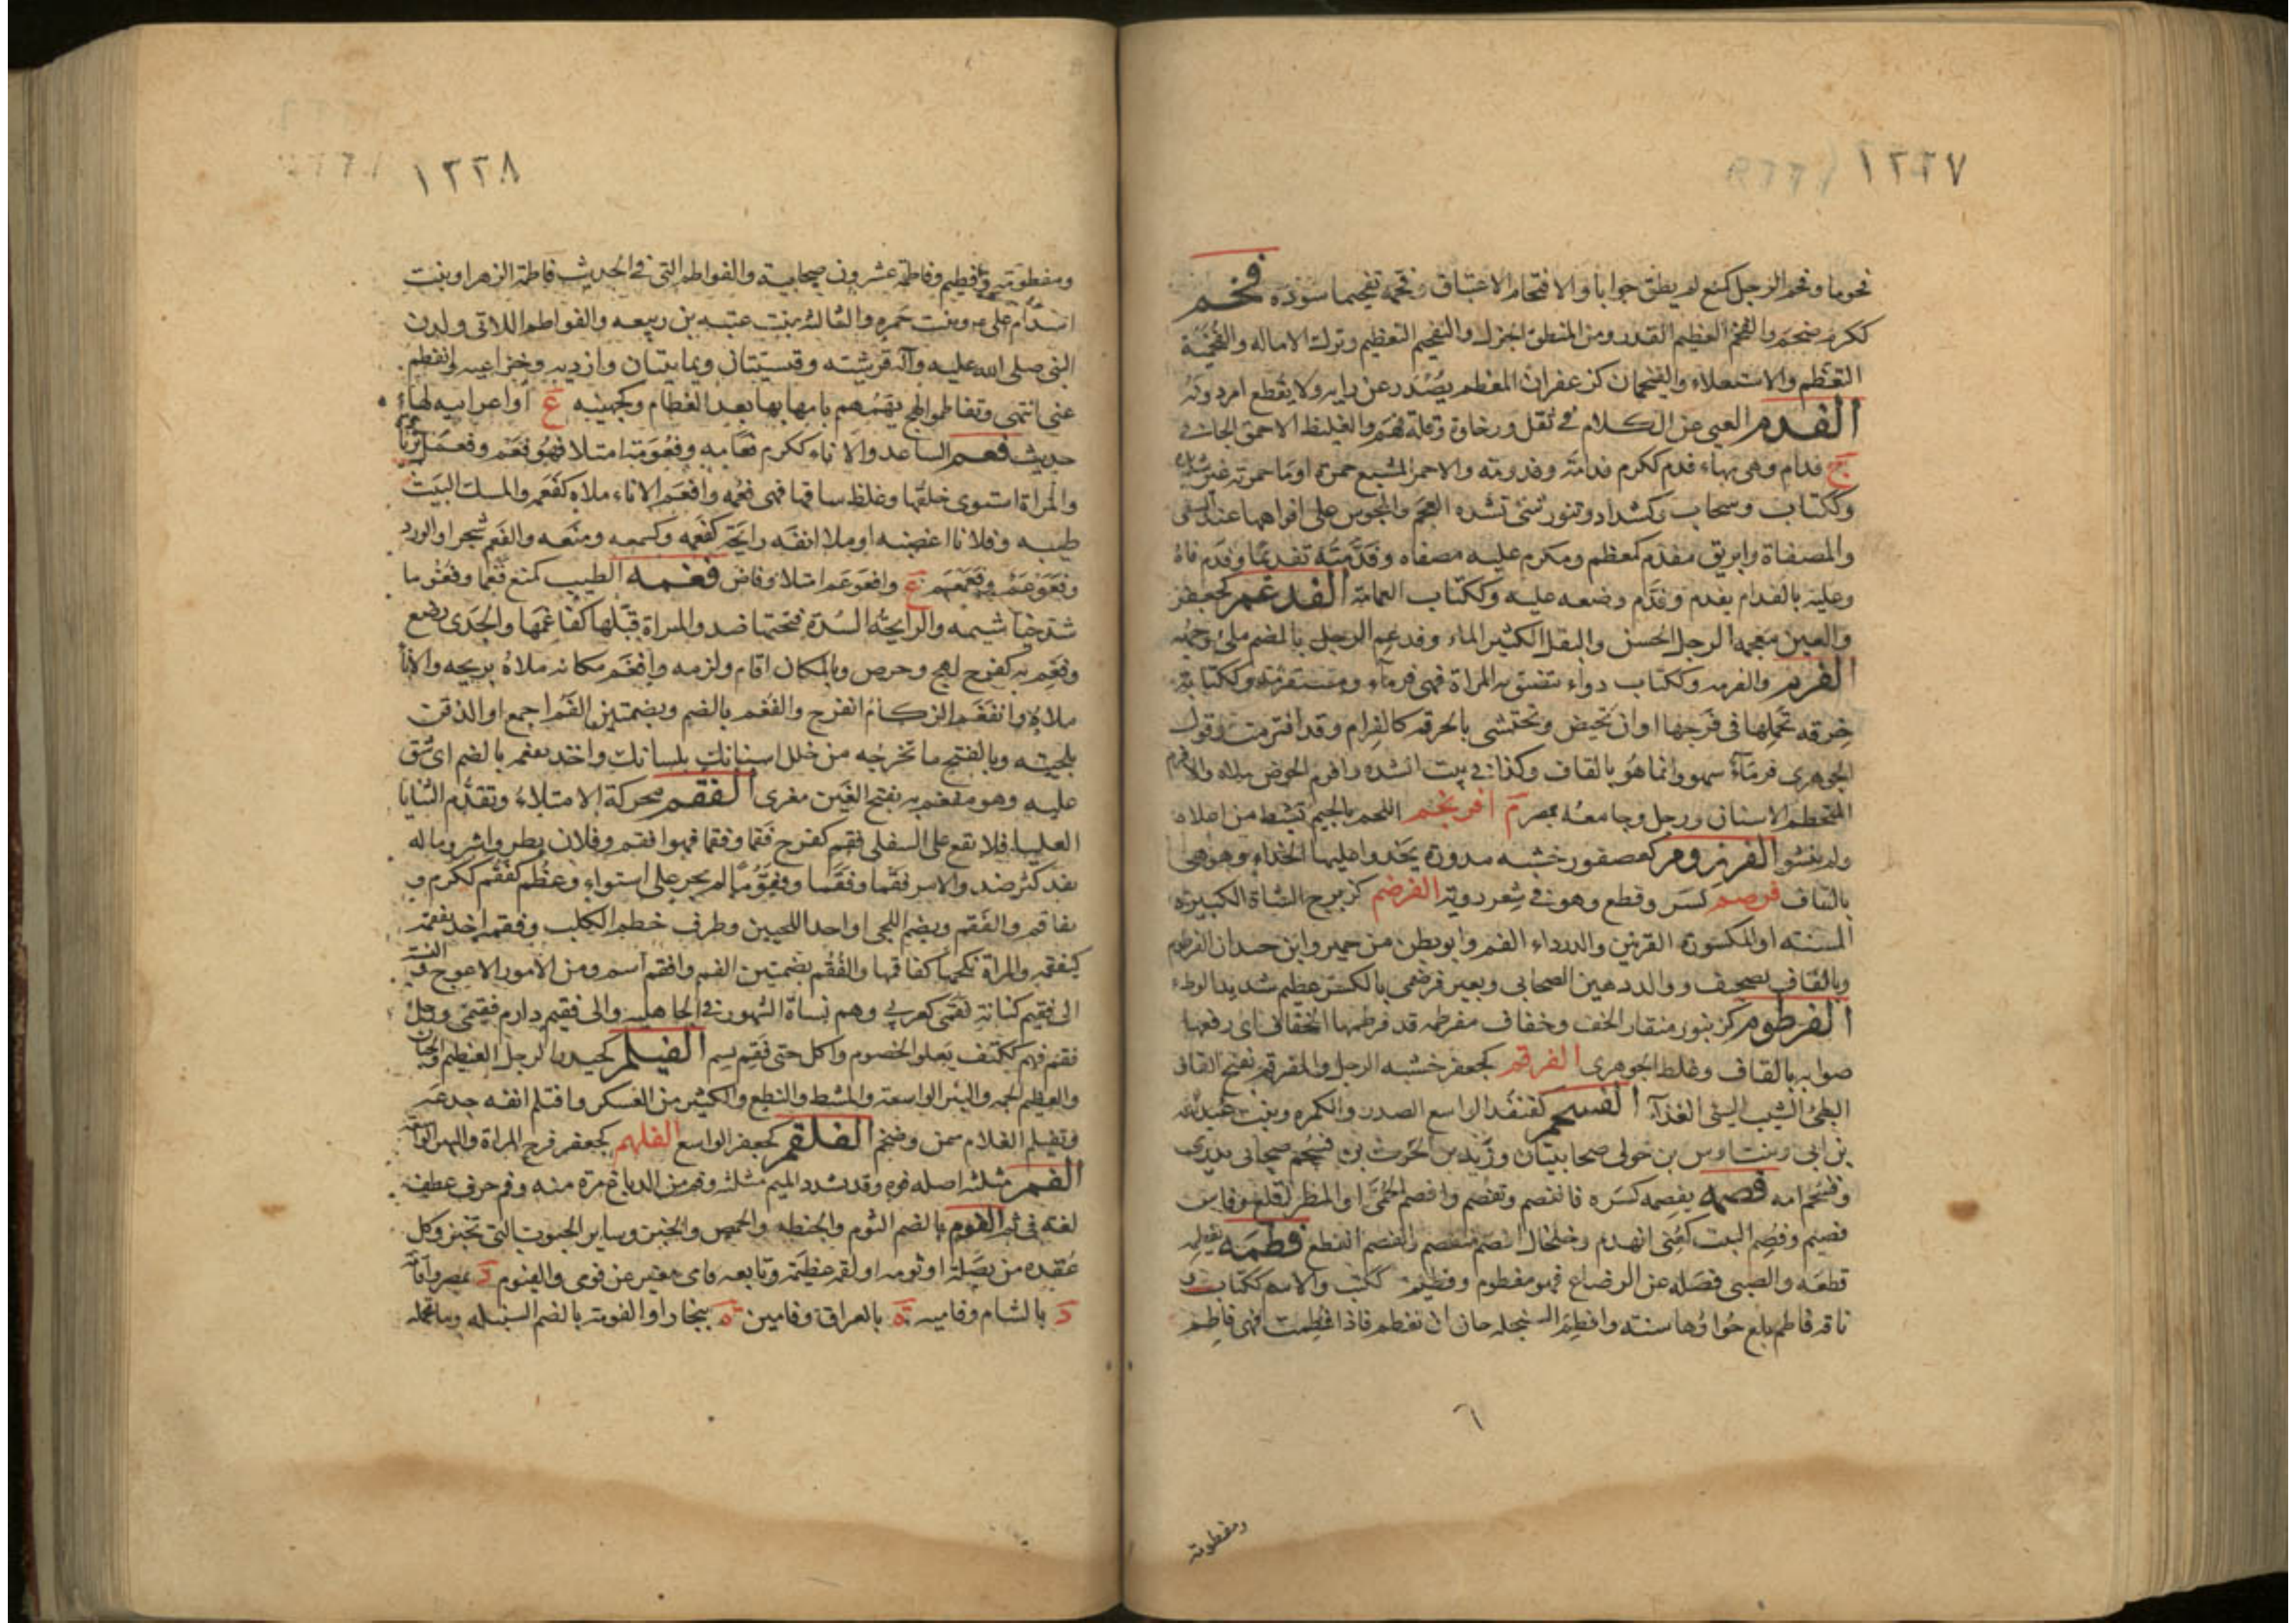 ١٢٢٧
فحوما وفحم الرجل كمنع لم يطق جوابا والافتحام الاعتباق وفحمه تفحيما سوده فخم
ككرم ضخم والفخم العظيم القدر ومن المنطق الجزل والتفخيم التعظيم وترك الاماله والفخمية
التعظم والاستعلاء والفيخمان كزعفران المعظم يصدر عن رايه ولا يقطع امر دونه
الفدم العيي عن الكلام في ثقل ورخاوة وقلة فهم والغليظ الاحمق الجافي
ج فدام وهي بهاء فدم ككرم فدامة وفدومة والاحمر المشبع حمرة او ما حمرته غير شديدة
وككتاب وسحاب وكشداد وتنور شئ تشده العجم والمجوس على افواهها عند السقي
والمصفاة وابريق مفدم كمعظم ومكرم عليه مصفاه وفدمته تفديما وفدم فاه
وعليه بالفدام يفدم وفدم وضعه عليه وككتاب العمامة الفدغم كجعفر
والعين معجمه الرجل الحسن والبقل الكثير الماء وفدغم الرجل بالضم ملئ وجهه
الفرم والفرمه وككتاب دواء تتضيق به المراة فهي فرماء ومستفرمة وككتابة
خرقه تحملها في فرجها او ان تحيض وتحتشي بالخرقه كالفرام وقد افترمت وقول
الجوهري فرماء سهو وانما هو بالقاف وكذا في بيت انشده وافرم الحوض ملاه والافرم
المتحطم الاسنان ورجل وجامعه بمصر م افرنجم اللحم بالجيم تشيط من اعلاه
ولم ينشو الفرزوم كعصفور خشبه مدورة يحذو عليها الحذاء وهو هي
بالقاف فرصم كسر وقطع وهو في شعر دوبه الفرضم كزبرج الشاة الكبيرة
المسنه او المكسورة القرنين والدرداء الفم وابو بطن من حمير وابن حدان الفرضم
وبالقاف تصحيف ووالد ذهبن الصحابي وبعير فرضمي بالكسر عظيم شديد الوطء
الفرطوم كزنبور منقار الخف وخفاف مفرطمه قد فرطمها الخفاف اي رقعها
صوابه بالقاف وغلط الجوهري الفرقم كجعفر خشبه الرجل والمفرقم بفتح القاف
البطئ الشيب السئ الغذاء الفسحم كقنفذ الواسع الصدر والكمره وبنت عبدالله
بن ابي وبنت اوس بن خولي صحابيتان وزيد بن الحرث بن فسحم صحابي بدري
وفسحم امه فصمه يفصمه كسره فانفصم وتفصم وافصم الحمى او المطر اقلع وفاس
فصيم وفصم البيت كعني انهدم وخلخال انفصم منفصم وانفصم انقطع فطمه يفطمه
قطعه والصبي فصله عن الرضاع فهو مفطوم وفطيم ككتب والاسم ككتاب و
ناقه فاطم بلغ حوارها سنته وافطم السخله حان ان تفطم فاذا فطمت فهي فاطم
٦
ومفطومة
١٢٢٨
ومفطومة وفطيم وفاطمة عشرون صحابية والفواطم التي في الحديث فاطمة الزهرا وبنت
اسد ام علي وبنت حمزه والثالثه بنت عتبه بن ربيعه والفواطم اللاتي ولدن
النبي صلى الله عليه وآله قرشية وقيسيتان ويمانيتان وازديه وخزاعيه وانفطم
عني انتهى وتفاطموا لهج بهمهم بامهاتها بعد الفطام وكجهينه ع او اعرابيه لها
حديث فعم الساعد والاناء ككرم فعامه وفعومة امتلا فهو فعم
والمراة استوى خلقها وغلظ ساقها فهي فعمه وافعم الاناء ملاه كفعم والمسك البيت
طيبه وفلانا اغضبه او ملا انفه رايحة كفعمه وكسمعه ومنعه والفعم شجر او الورد
وافعوعم امتلا وفاض فغمه الطيب كمنع فغما وفغوما
سد خياشيمه والرايحة السدة فتحتها ضد والمراة قبلها كفاغمها والجدي رضع
وفغم به كفرح لهج وحرص وبالمكان اقام ولزمه وافغم مكانه ملاه بريحه والاناء
ملاه وانفغم الزكام انفرج والفغم بالضم وبضمتين الفم اجمع او الذقن
بلحيته وبالفتح ما تخرجه من خلل اسنانك بلسانك واخذ بفغم بالضم اي شق
عليه وهو مفغم به بفتح الغين مغرى الفقم محركة الامتلاء وتقدم الثنايا
العليا فلا تقع على السفلى فقم كفرح فقما وفقما فهو افقم وفلان بطر واشر وماله
نفد كثر ضد والامر فقما وفقما وفقوما لم يجر على استواء وعظم كفقم ككرم و
تفاقم والفقم ويضم اللحى او احد اللحيين وطرف خطم الكلب وفقمه اخذ بفقمه
كتفقمه والمراة نكحها كفاقمها والفقم بضمتين الفم وافقم اسم ومن الامور الاعوج والنسبة
الى فقيم كنانة فقمي كعربي وهم نساة الشهور في الجاهليه والى فقيم دارم فقيمي ورجل
فقم فهم ككتف يعلو الخصوم واكل حتى فقم بشم الفيلم كحيدر الرجل العظيم والجبان
والعظيم الجمه والبئر الواسعة والمشط والنطع والكثير من العسكر وافتلم انفه جدعه
وتفيلم الغلام سمن وضخم الفلقم كجعفر الواسع الفلهم كجعفر فرج المراة والبير الواسعة
الفم مثلثه اصله فوه وقد تشدد الميم مثلثه وفم من الدباغ مرة منه وفم حرف عطف
لغة في ثم الفوم بالضم الثوم والحنطه والحمص والخبز وساير الحبوب التي تخبز وكل
عقده من بصلة او ثومه او لقمه عظيمة وبائعه فامي مغير عن فومي والفيوم د بمصر
د بالشام وفاميه ة بالعراق وفامين ة ببخارا والفومة بالضم السنبله وما تحمله